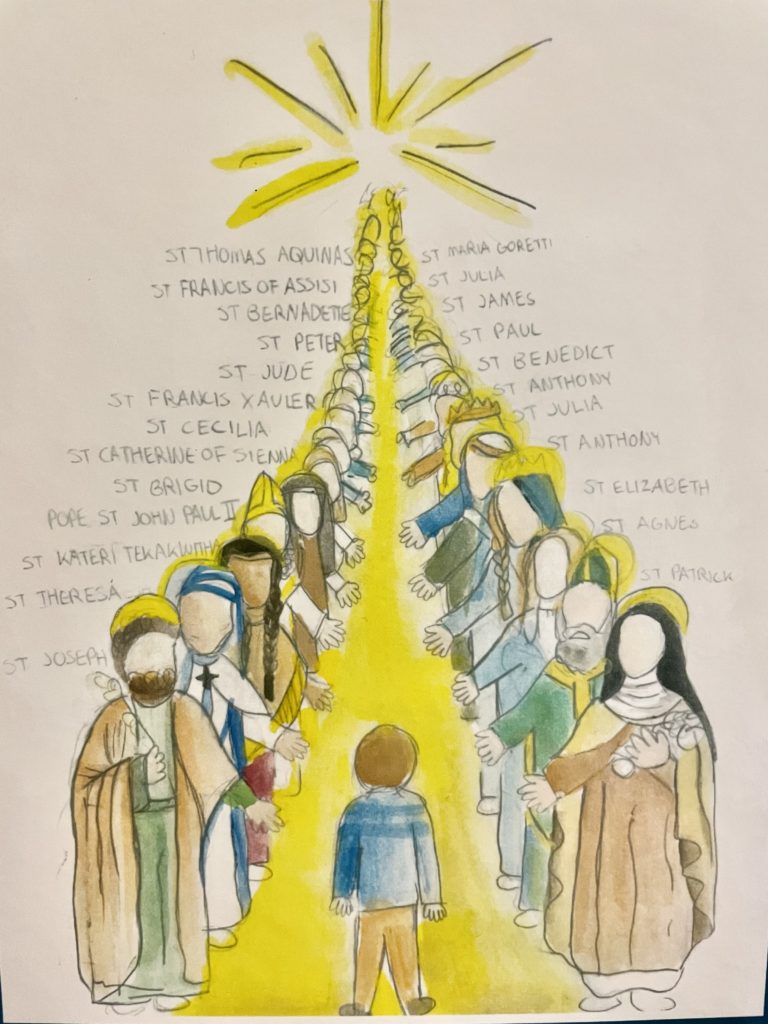 ST THOMAS AQUINAS
ST FRANCIS OF ASSISI
ST BERNADETTE
ST PETER
ST JUDE
ST FRANCIS XAVIER
ST CECILIA
ST CATHERINE OF SIENNA
ST BRIGID
POPE ST JOHN PAUL II
ST KATERI TEKAKWITHA
ST THERESA
ST JOSEPH
ST MARIA GORETTI
ST JULIA
ST JAMES
ST PAUL
ST BENEDICT
ST ANTHONY
ST JULIA
ST ANTHONY
ST ELIZABETH
ST AGNES
ST PATRICK